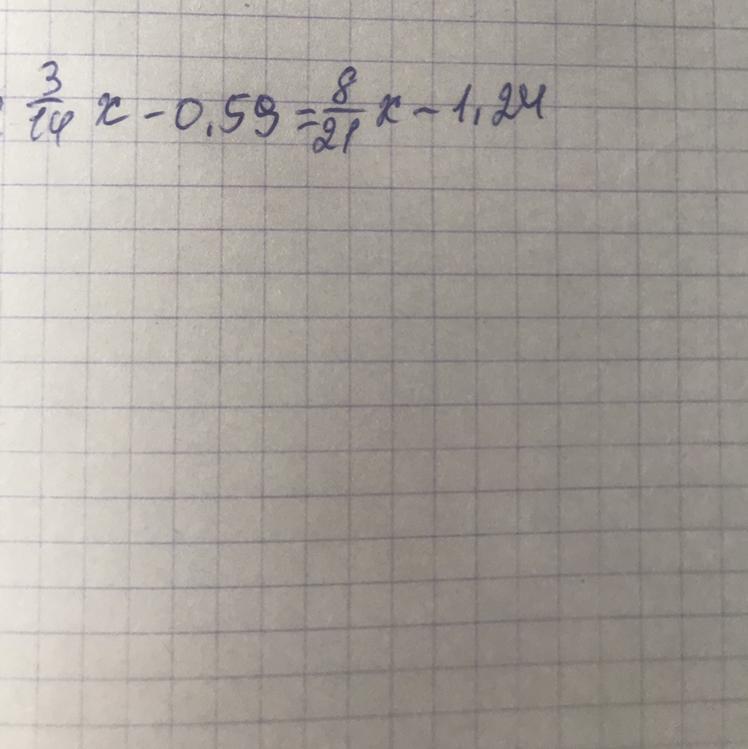 3/14 x - 0,59 = 8/21 x - 1,24